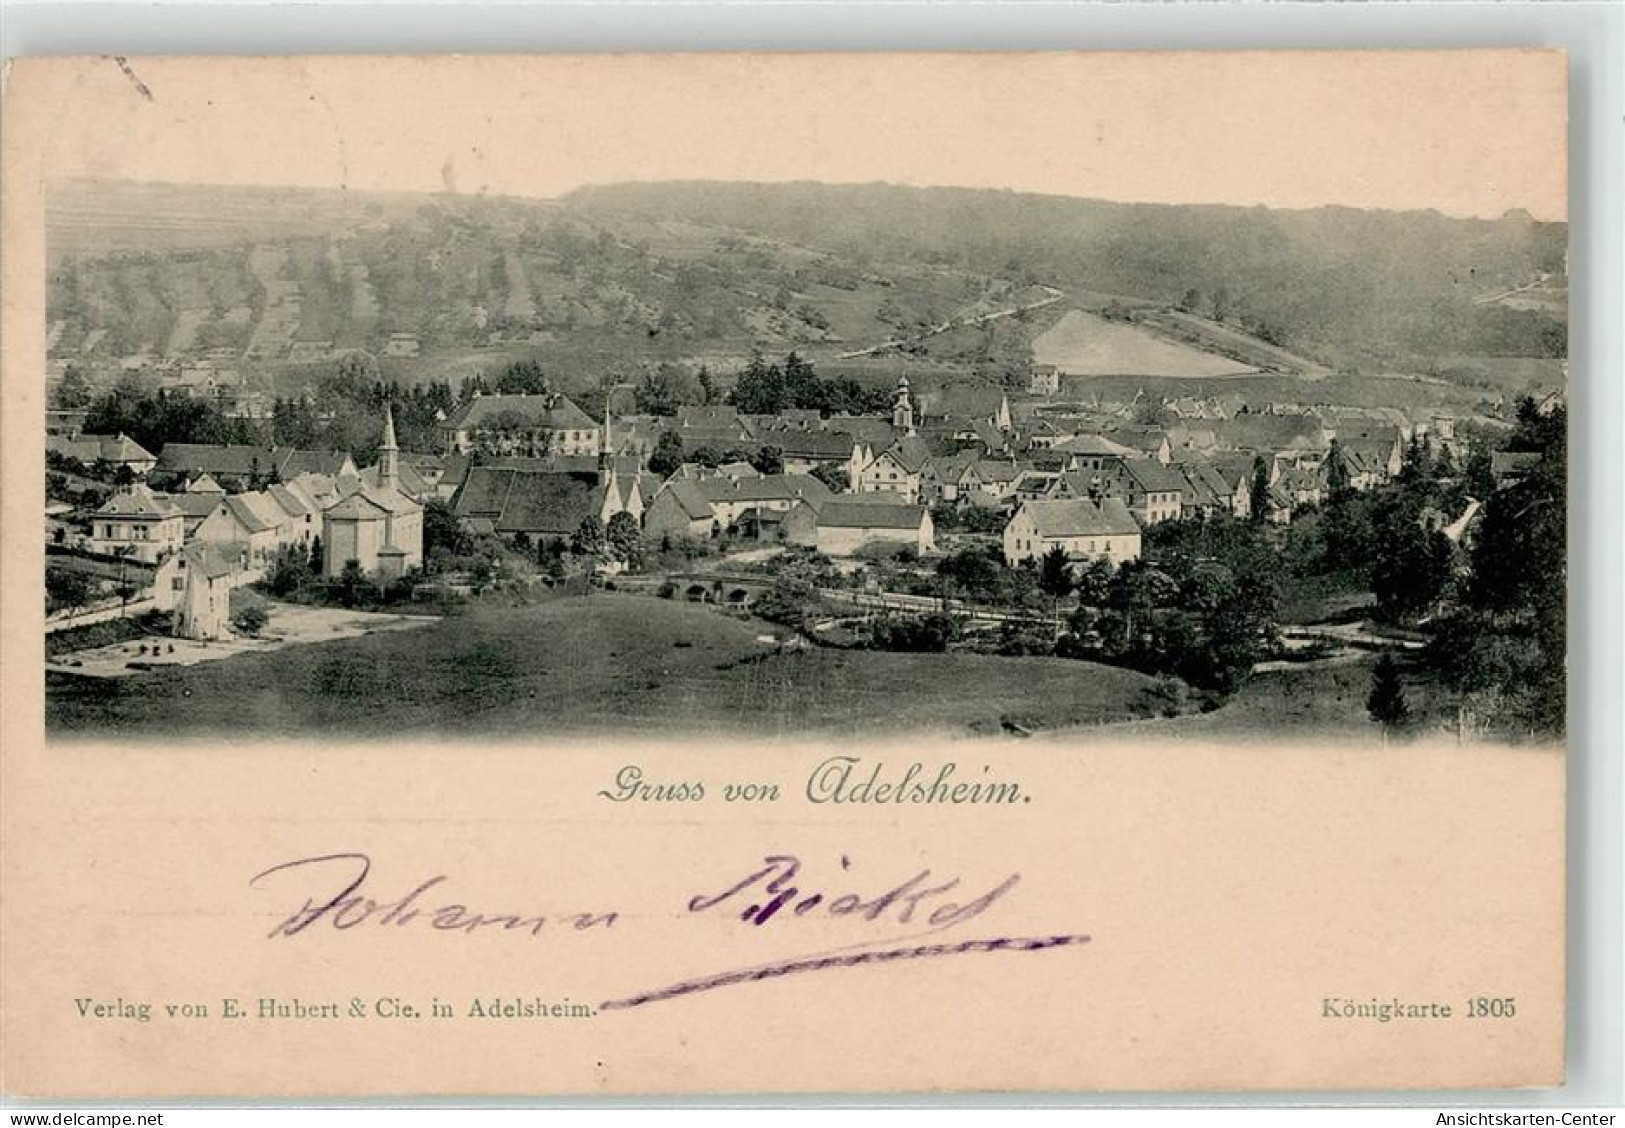 Gruss von Adelsheim.
Johann
Verlag von E. Hubert & Cie. in Adelsheim.
Königkarte 1805
www.delcampe.net
tpk111
Ansichtskarten-Center